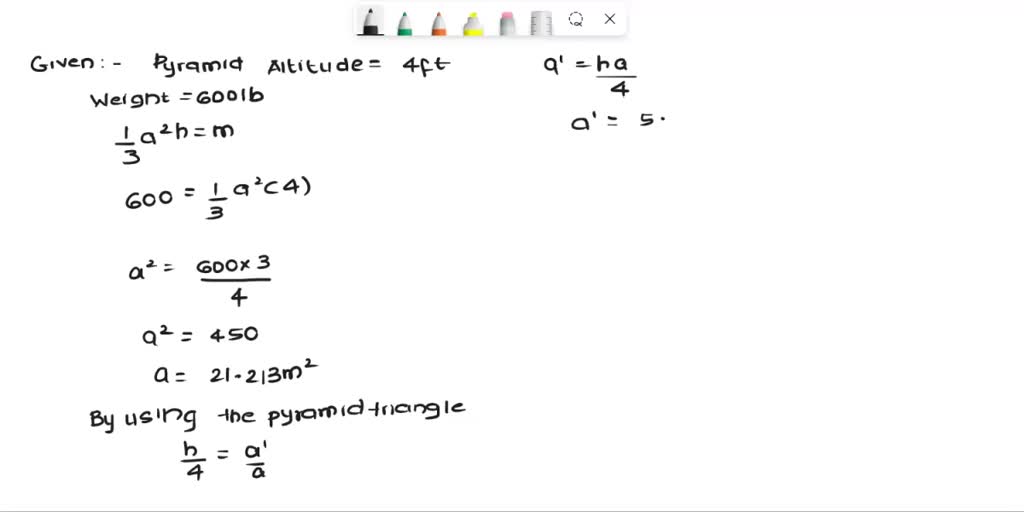 Given:- Pyramid Altitude = 4ft
Weight = 600lb
1/3 a²h = m
600 = 1/3 a²(4)
a² = 600×3/4
a² = 450
a = 21.213m²
By using the pyramid triangle
h/4 = a'/a
a' = ha/4
a' = 5.